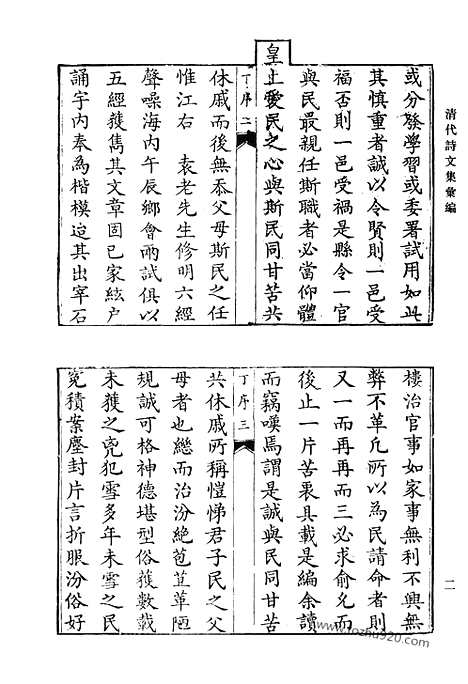 清代詩文集彙編
或分發學習或委署試用如此
其慎重者誠以令賢則一邑受
福否則一邑受禍是縣令一官
與民最親任斯職者必當仰體
皇上愛民之心與斯民同甘苦共
丁序二
休戚而後無忝父母斯民之任
惟江右 袁老先生修明六經
聲噪海内午辰鄉會兩試俱以
五經獲雋其文章固已家絃户
誦宇内奉為楷模迨其出宰石
樓治官事如家事無利不興無
弊不革凢所以為民請命者則
又一而再再而三必求俞允而
後止一片苦衷具載是編余讀
而竊嘆焉謂是誠與民同甘苦
丁序三
共休戚所稱愷悌君子民之父
母者也繼而治汾絶苞苴革陋
規誠可格神德堪型俗獲數載
未獲之兇犯雪多年未雪之民
冤積案塵封片言折服汾俗好
二
www.fozhu920.com